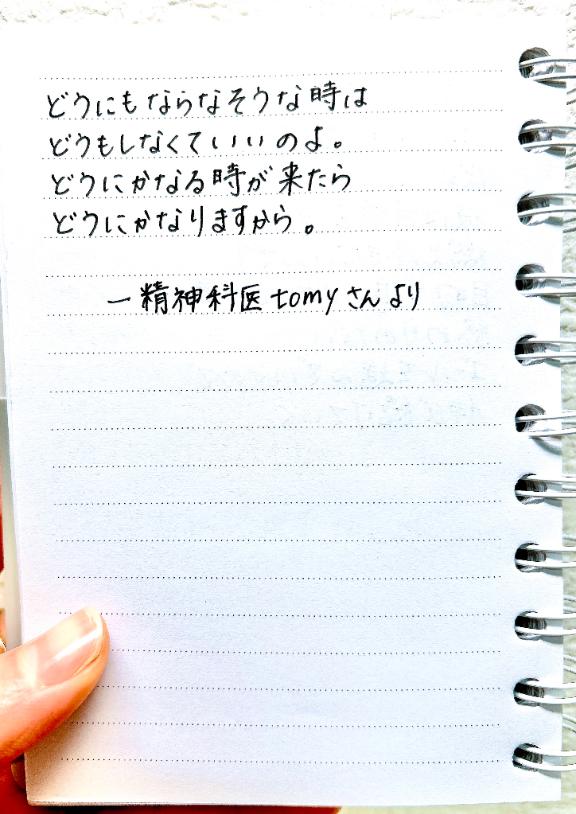 どうにもならなそうな時は
どうもしなくていいのよ。
どうにかなる時が来たら
どうにかなりますから。
ー精神科医tomyさんより